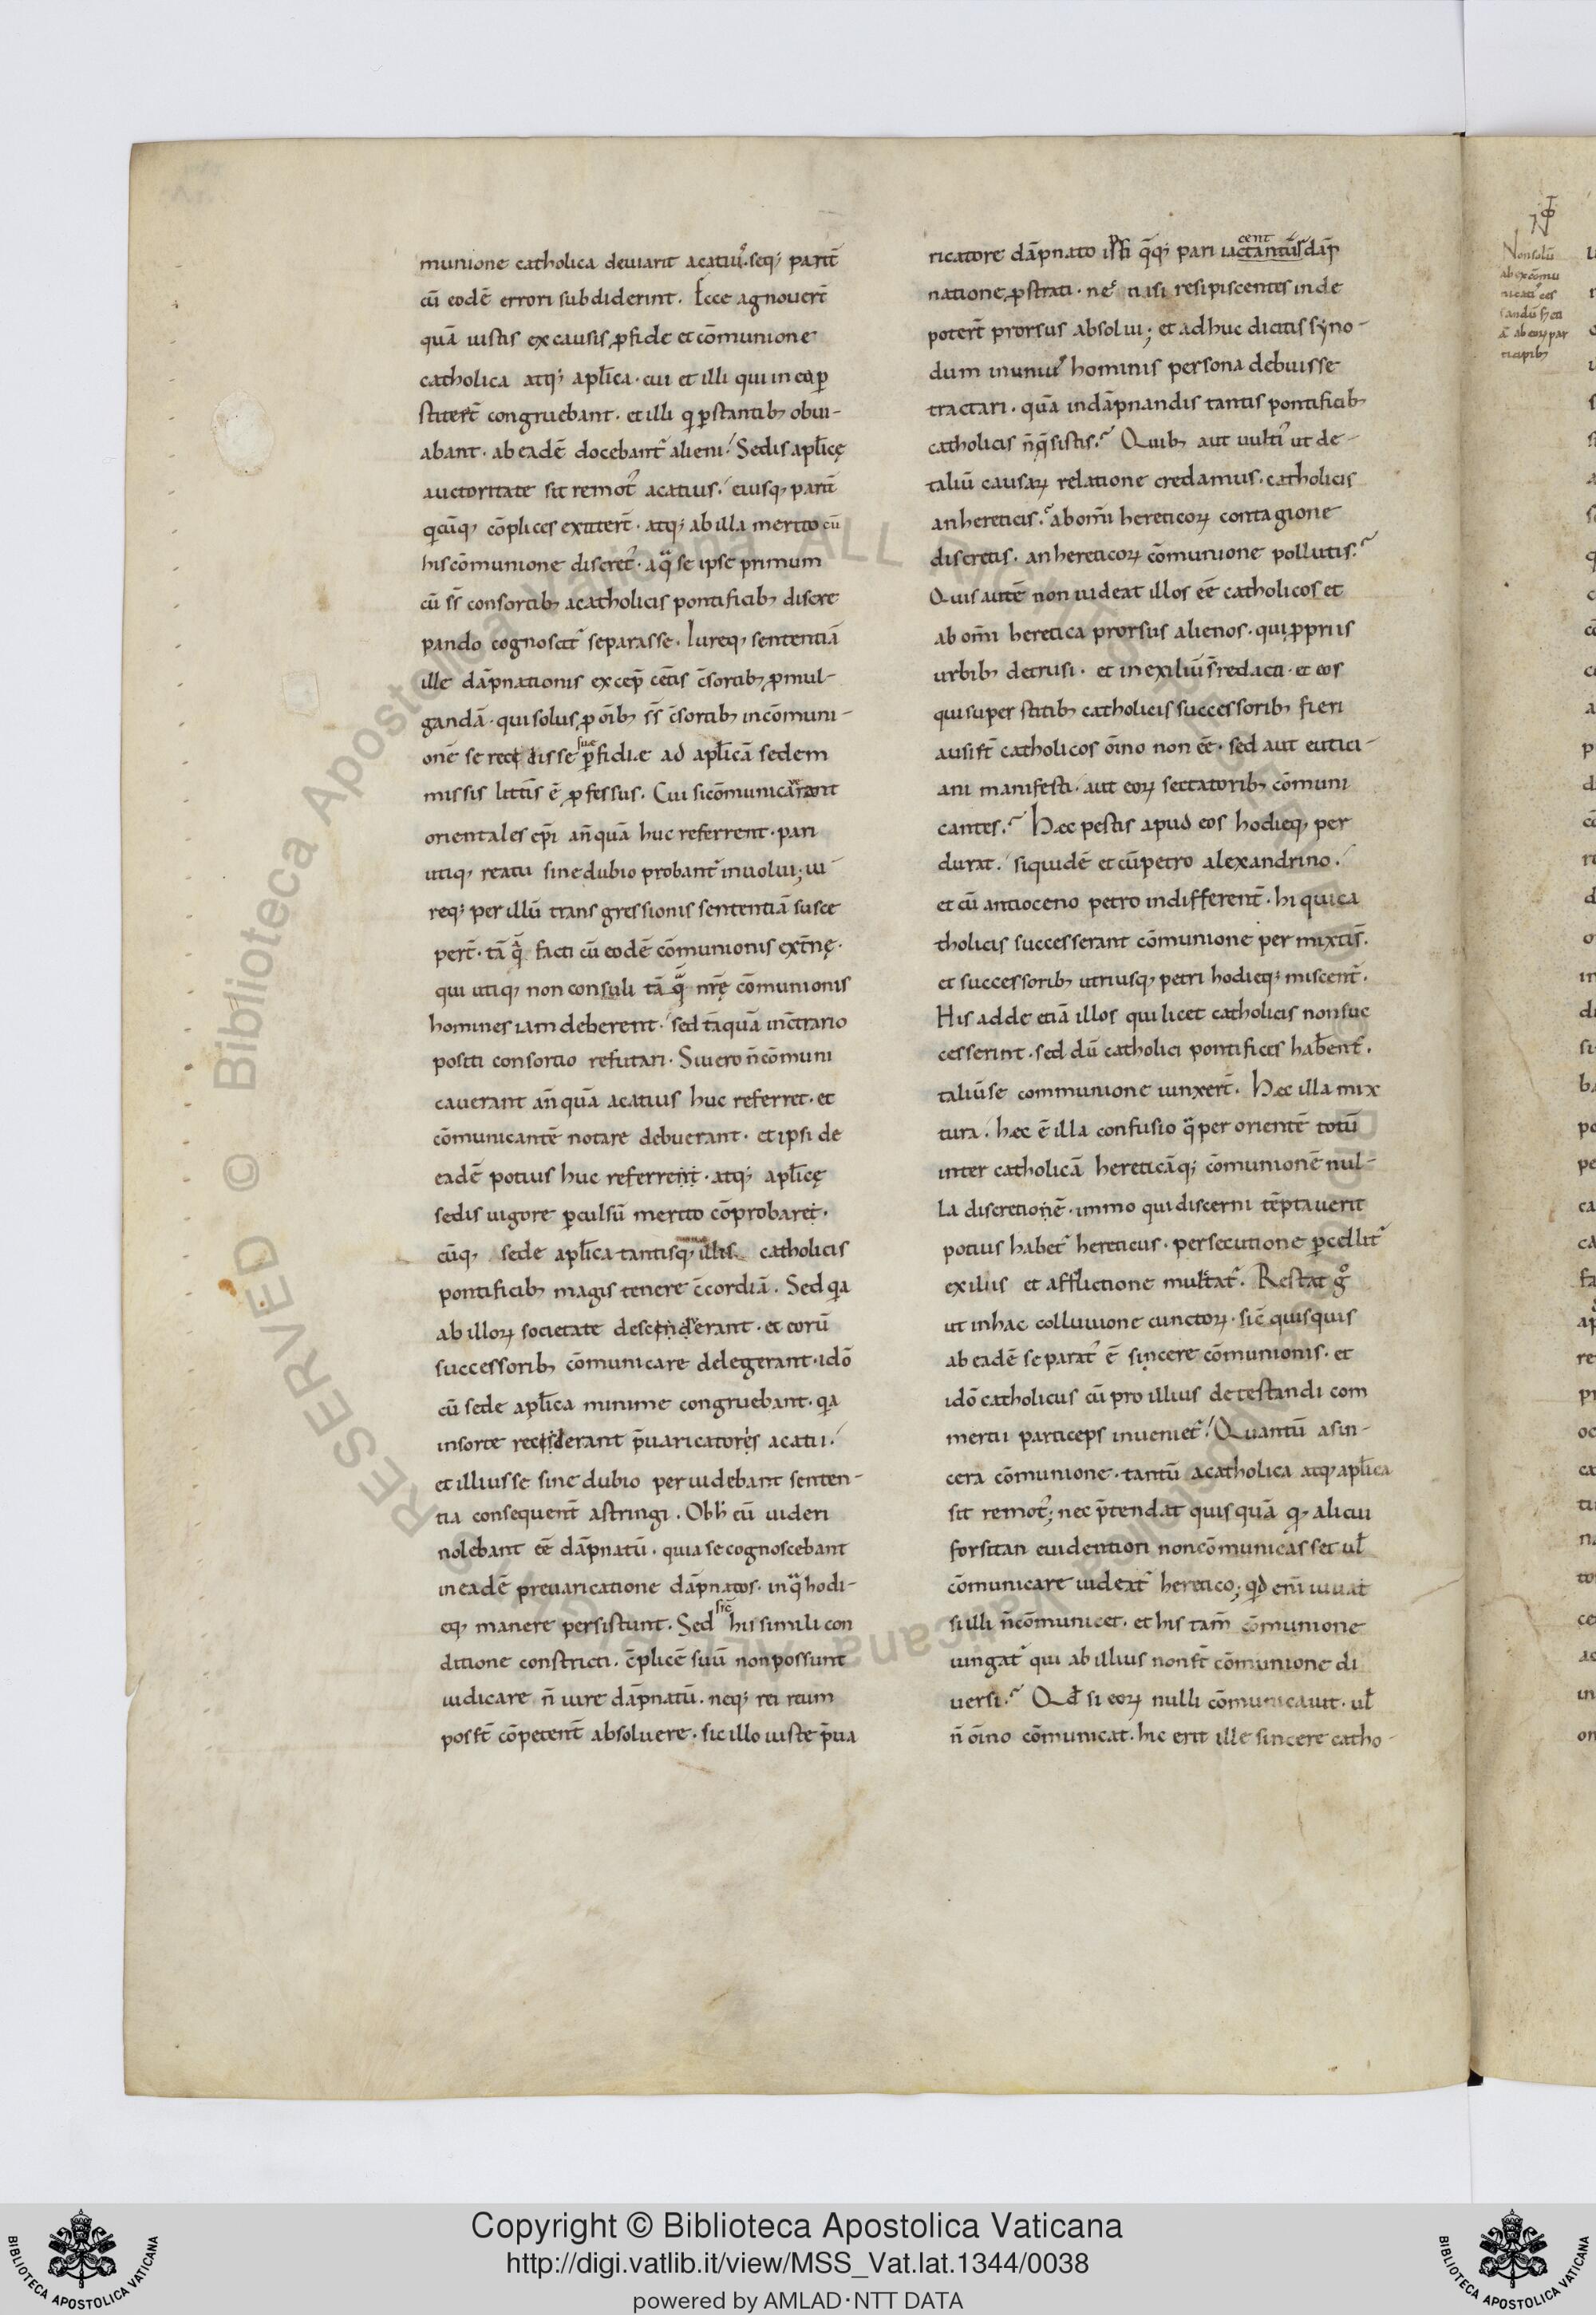 munione catholica deuiarit acatiuˀ. seq; parit̄
cū eodē errori subdiderint. Ecce agnouert̄
quā iustis ex causis ꝓfide et cōmunione
catholica atq; apl̄ica. cui et illi qui in ea ꝑ
stitert̄ congruebant. et illi q ꝑstantib; obui-
abant. ab eadē docebant᷑ alieni. Sedis apl̄icę
auctoritate sit remotˀ acatius. eiusq; parit̄
q̇cūq; cōplices extitert̄. atq; ab illa merito cū
his cōmunione discretˀ. a qͣ se ipse primum
cū ss̄ consortib; a catholicis pontificib; discre
pando cognoscit᷑ separasse. Iureq; sententiā
ille dāpnationis excep̄ cet̄is c̄sortib; ꝓmul-
gandā. qui solus ꝓ oīb; ss̄ c̄sortib; in cōmuni-
onē se recedisse suae ꝑfidiae ad apl̄icā sedem
missis litt̄is ē ꝓfessus. Cui si cōmunicarant
orientales ep̄i an̄quā huc referrent. pari
utiq; reatu sine dubio probant᷑ inuolui; iu-
req; per illū transgressionis sententiā susce
pert̄. tā qͣ̄ facti cū eodē cōmunionis ext̄nę.
qui utiq; non consuli tā qͣ̄ nr̄ę cōmunionis
homines iam deberent. sed tāquā in c̄trario
positi consortio refutari. Si uero n̄ cōmuni
cauerant an̄quā acatius huc referret. et
cōmunicantē notare debuerant. et ipsi de
eadē potius huc referrent. atq; apl̄icę
sedis uigore ꝑculsū merito cōprobaret.
cūq; sede apl̄ica tantisq; illis catholicis
pontificib; magis tenere c̄cordiā. Sed qa
ab illoꝝ societate descenderant. et eorū
successorib; cōmunicare delegerant. idō
cū sede apl̄ica minime congruebant. qa
in sorte reciderant p̄uaricatoris acatii.
et illius se sine dubio peruidebant senten-
tia consequent̄ astringi. Ob h̄ eū uideri
nolebant eē dāpnatū. quia se cognoscebant
in eadē preuaricatione dāpnatos. in qͣ hodi-
eq; manere persistunt. Sed sic̄ hi simili con
ditione constricti. c̄plicē suū non possunt
iudicare n̄ iure dāpnatū. neq; rei reum
posst̄ cōpetent̄ absoluere. sic illo iuste p̄ua
ricatore dāpnato isti qͣq; pari iacent dāp
natione ꝓstrati. nec nisi resipiscentes inde
potert̄ prorsus absolui; et adhuc dicitis syno-
dum in uniuˀ hominis persona debuisse
tractari. quā in dāpnandis tantis pontificib;
catholicis n̄ q̄sistis. Quib; aut uultiˀ ut de
taliū causaꝝ relatione credamus. catholicis
an hereticis. ab om̄i hereticoꝝ contagione
discretis. an hereticoꝝ cōmunione pollutis.
Quis autē non uideat illos eē catholicos et
ab om̄i heretica prorsus alienos. qui ꝓpriis
urbib; detrusi. et in exiliū s̄t redacti. et eos
qui superstitib; catholicis successorib; fieri
ausi st̄ catholicos oīno non eē. sed aut eutici-
ani manifesti. aut eoꝝ sectatorib; cōmuni
cantes. Haec pestis apud eos hodieq; per
durat. siquidē et cū petro alexandrino.
et cū antioceno petro indifferent̄. hi qui ca
tholicis successerant cōmunione permixti s̄t.
et successorib; utriusq; petri hodieq; miscent᷑.
His adde etiā illos qui licet catholicis non suc
cesserint. sed dū catholici pontifices haberent᷑.
taliū se communione iunxert̄. Haec illa mix
tura. haec ē illa confusio qͣ per orientē totū
inter catholicā hereticāq; cōmunionē nul-
la discretionē. immo qui discerni tēptauerit
potius habet᷑ hereticus. persecutione ꝑcellit᷑
exiliis et afflictione multat᷑. Restat gͦ
ut in hac colluuione cunctoꝝ. sic̄ quisquis
ab eadē separatˀ ē sincere cōmunionis. et
idō catholicus cū pro illius detestandi com
mertii particeps inueniet᷑. Quantū a sin-
cera cōmunione. tantū a catholica atq; apl̄ica
sit remotˀ; nec p̄tendat quisquā q; alicui
forsitan euidentiori non cōmunicasset ul̄
cōmunicare uideat᷑ heretico; qd eni iuuat
si illi n̄ cōmunicet. et his tam̄ cōmunione
iungat᷑ qui ab illius non st̄ cōmunione di
uersi. Qd̄ si eoꝝ nulli cōmunicauit. ul̄
n̄ oīno cōmunicat. hic erit ille sincere catho-
Non solū
ab excōmu
nicatiˀ ces
sandū s; eti
ā ab eoꝝ par
ticipib;
© Biblioteca Apostolica Vaticana ALL RIGHTS RESERVED
Copyright © Biblioteca Apostolica Vaticana
http://digi.vatlib.it/view/MSS_Vat.lat.1344/0038
powered by AMLAD·NTT DATA
BIBLIOTECA APOSTOLICA VATICANA
BIBLIOTECA APOSTOLICA VATICANA